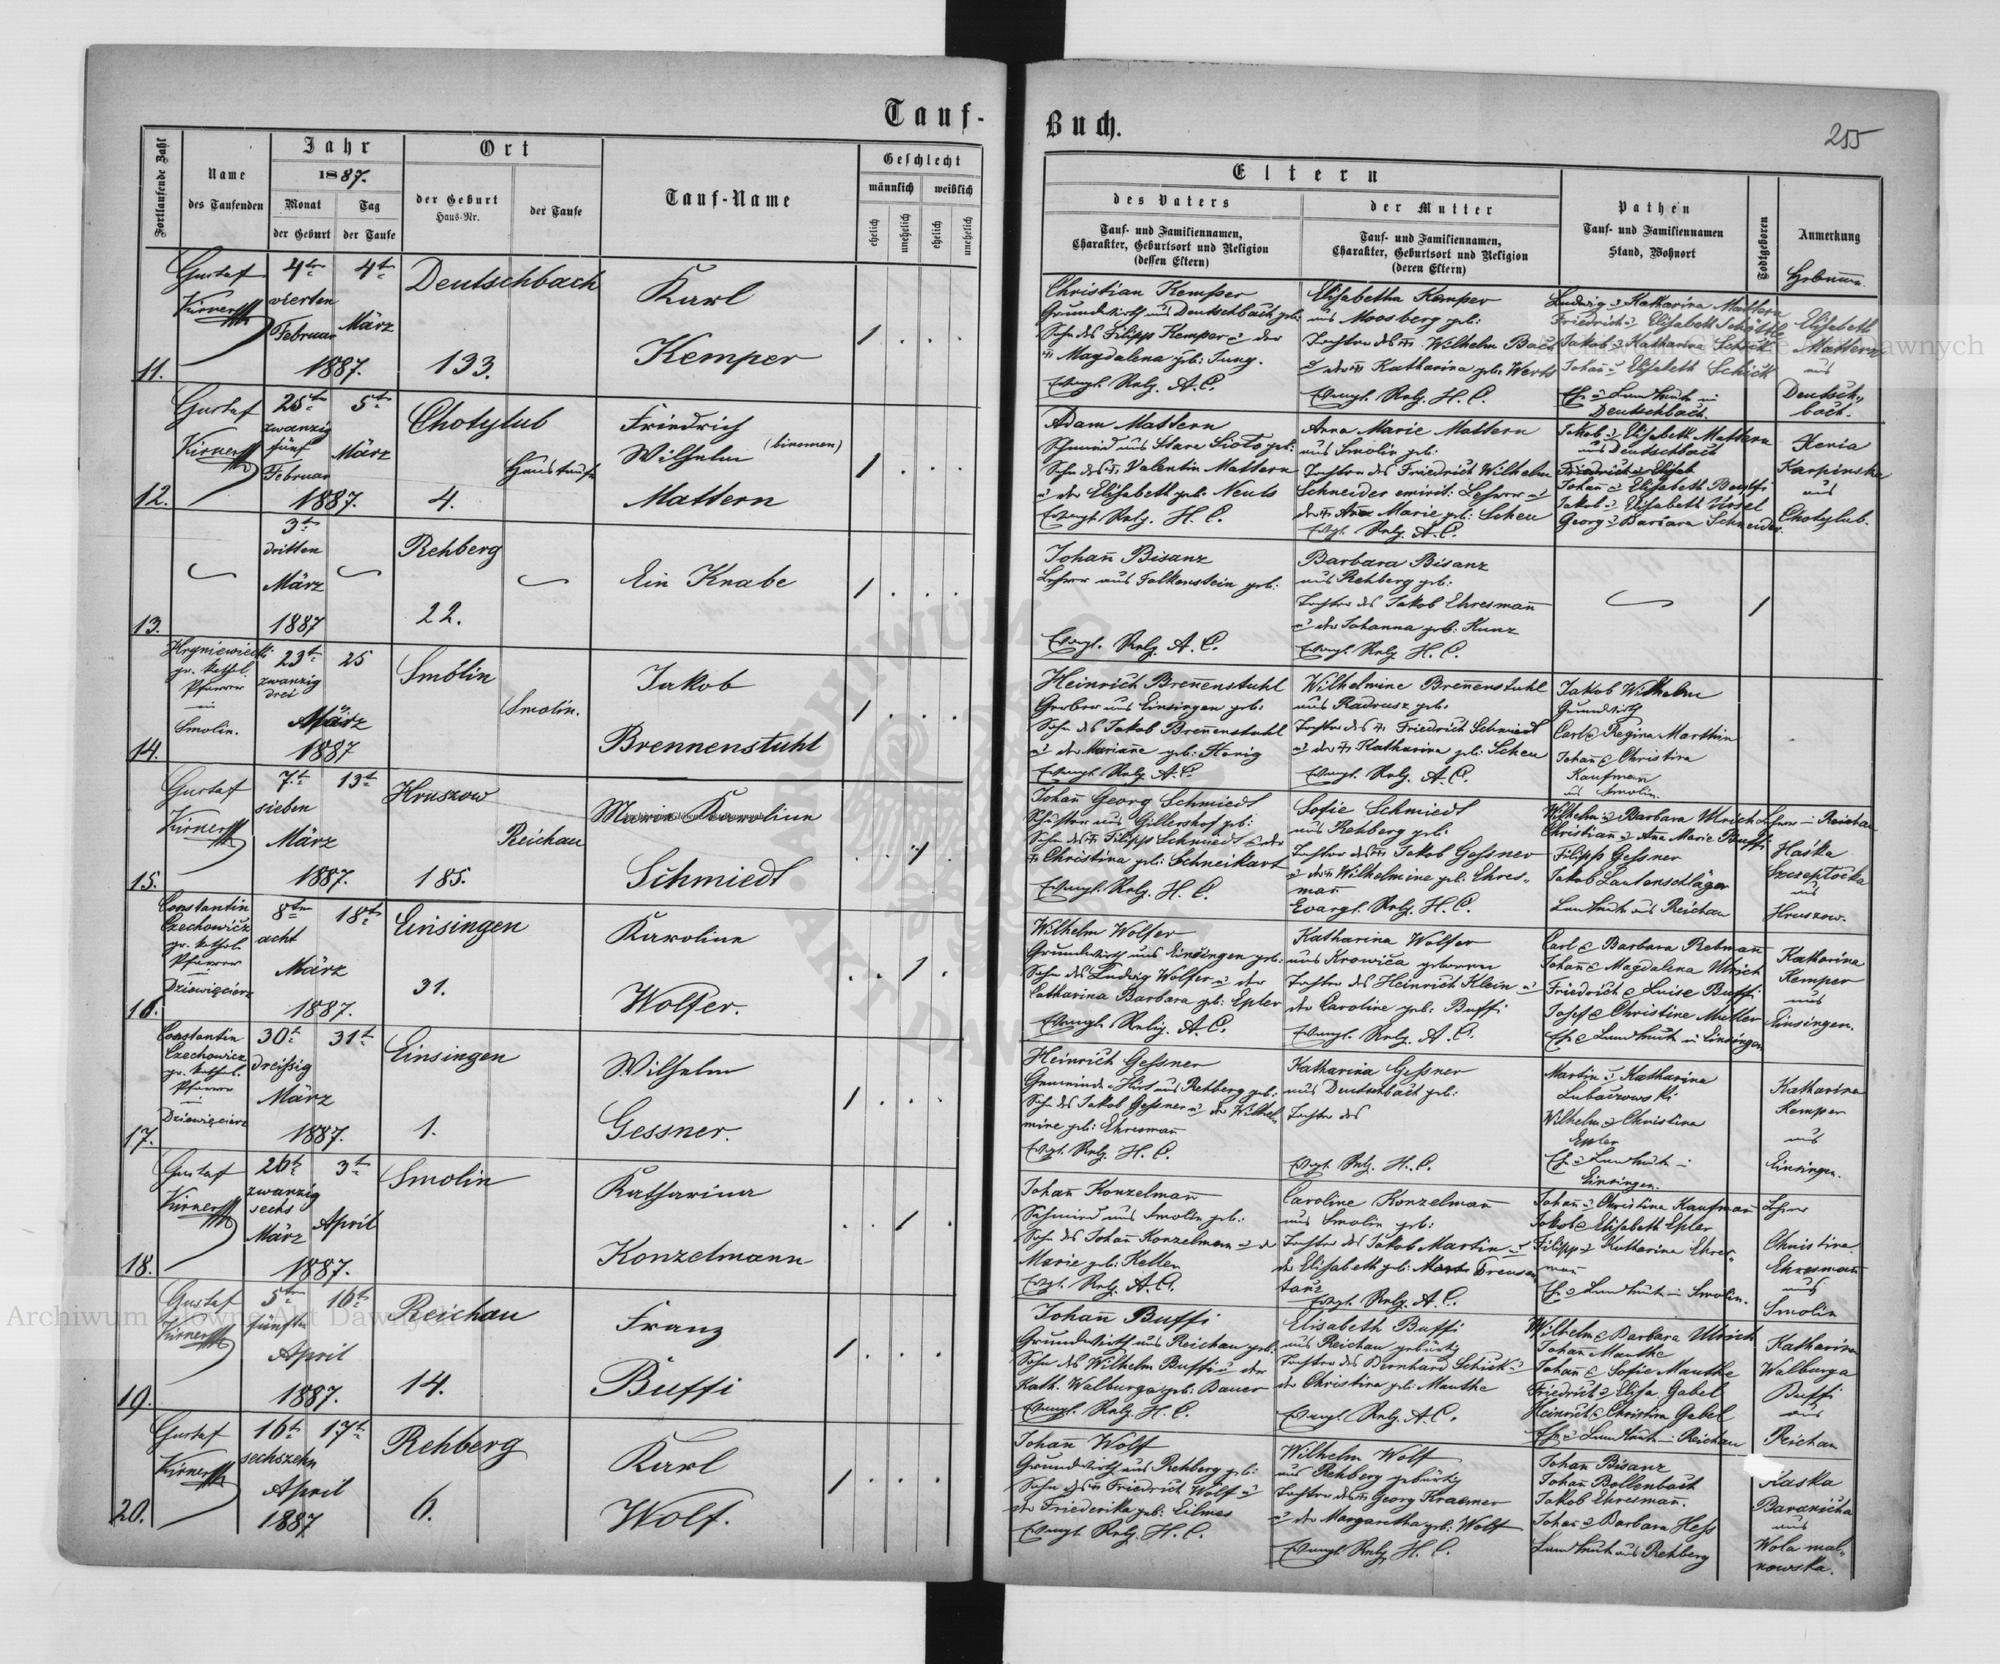 Tauf-
Buch.
255
Fortlaufende Zahl
Name
des Taufenden
Jahr
1887.
Monat
der Geburt
Tag
der Taufe
Ort
der Geburt
Haus-Nr.
der Taufe
Tauf-Name
Geschlecht
männlich
weiblich
ehelich
unehelich
ehelich
unehelich
Eltern
des Vaters
Tauf- und Familiennamen,
Charakter, Geburtsort und Religion
(dessen Eltern)
der Mutter
Tauf- und Familiennamen,
Charakter, Geburtsort und Religion
(deren Eltern)
Pathen
Tauf- und Familiennamen
Stand, Wohnort
Todtgeboren
Anmerkung
11.
Gustaf
Kirner
4ten
vierten
Februar
4ten
März
1887.
Deutschbach
133.
Karl
Kemper
1
Christian Kemper
Grundwirth aus Deutschbach geb:
Sohn des Filipp Kemper u der
Magdalena geb: Jung.
Evangl. Relg. A. C.
Elisabetha Kemper
aus Moosberg geb:
Tochter des Wilhelm Bach
u der Katharina geb: Werts
Evangl. Relg. H. C.
Ludwig u Katharina Mattern
Friedrich u Elisabeth
Jakob u Katharina Schick
Johann u Elisabeth Schick
Deutschbach.
Elisabeth
Mattern
aus
Deutsch-
bach.
12.
Gustaf
Kirner
25ten
zwanzig
fünf
Februar
5ten
März
1887.
Chotylub
4.
Haustaufe
Friedrich
Wilhelm (binomen)
Mattern
1
Adam Mattern
Schmied aus Stare Sioło geb:
Sohn des Valentin Mattern
u der Elisabeth geb: Neuls
Evangl. Relg. H. C.
Anna Marie Mattern
aus Smolin geb:
Tochter des Friedrich Wilhelm
Schneider emirit: Lehrer u
der Anna Marie geb: Scheu
Evgl. Relg. A. C.
Jakob u Elisabeth Mattern
aus Deutschbach
Friedrich u Elisab
Johann u Elisabeth
Jakob u Elisabeth Ursel
Georg u Barbara Schneider
Xenia
Karpinska
aus
Chotylub.
13.
3ten
dritten
März
1887
Rehberg
22.
Ein Knabe
1
Johann Bisanz
Lehrer aus Falkenstein geb:
Evangl. Relg. A. C.
Barbara Bisanz
aus Rehberg geb:
Tochter des Jakob Ehresmann
u der Johanna geb: Kunz
Evangl. Relg. H. C.
1
14.
gr. kathol.
Pfarrer
in
Smolin.
23ten
zwanzig
drei
25
März
1887
Smolin
Smolin.
Jakob
Brennenstuhl
1
Heinrich Brennenstuhl
Gerber aus Einsingen geb:
Sohn des Jakob Brennenstuhl
u der Marianne geb: Honig
Evangl. Relg. A. C.
Wilhelmine Brennenstuhl
aus Radrusz geb:
Tochter des Friedrich Schmied
u der Katharina geb: Scheu
Evangl. Relg. A. C.
Jakob Wilhelm
Grundwirth
Carl u Regina Marthin
Johann u Christina
Kaufmann
aus Smolin.
15.
Gustaf
Kirner
7ten
sieben
März
13ten
1887.
Hruszow
185.
Reichau
Maria Karoline
Schmiedt
1
Johann Georg Schmiedt
Schuster aus Gillershof geb:
Sohn des Filipp Schmiedt u der
Christina geb: Schneikart
Evangl. Relg. H. C.
Sofie Schmiedt
aus Rehberg geb:
Tochter des Jakob Gessner
u der Wilhelmine geb: Ehres-
mann
Evangl. Relg. H. C.
Wilhelm u Barbara Ulrich Lehrer in Reichau
Christian u Anna Marie Buffi
Filipp Gessner
Jakob Lautenschläger
Landwirth aus Reichau
Haśka
aus
Hruszow.
16.
Constantin
Czechowicz
gr. kathol.
Pfarrer
in
Dziewięcierz
8ten
acht
März
18ten
1887.
Einsingen
31.
Karoline
Wolfer.
1
Wilhelm Wolfer
Grundwirth aus Einsingen geb:
Sohn des Ludwig Wolfer u der
Catharina Barbara geb: Epler
Evangl. Relig. A. C.
Katharina Wolfer
aus Krowica geboren
Tochter des Heinrich Klein u
der Caroline geb: Buffi
Evangl. Relg. A. C.
Carl u Barbara Rebmann
Johann u Magdalena Ulrich
Friedrich u Luise Buffi
Josef u Christine Muller
in Einsingen
Katharina
Kemper
aus
Einsingen.
17.
Constantin
Czechowicz
gr. kathol.
Pfarrer
in
Dziewięcierz
30ten
dreißig
März
31ten
1887.
Einsingen
1.
Wilhelm
Gessner.
1
Heinrich Gessner
Gemeinde-Hirt aus Rehberg geb:
Sohn des Jakob Gessner u der Wilhel-
mine geb: Ehresmann
Evgl. Relg. H. C.
Katharina Gessner
aus Deutschbach geb:
Tochter des
Evgl. Relg. H. C.
Martin u Katharina
Wilhelm u Christina
Epler
Einsingen.
Katharina
Kemper
aus
Einsingen.
18.
Gustaf
Kirner
26ten
zwanzig
sechs
März
3ten
April
1887.
Smolin
Katharina
Konzelmann
1
Johann Konzelmann
Schmied aus Smolin geb:
Sohn des Johann Konzelmann u d
Marie geb: Keller
Evgl. Relg. A. C.
Caroline Konzelmann
aus Smolin geb:
Tochter des Jakob Martin u
der Elisabeth geb:
Evgl. Relg. A. C.
Johann u Christina Kaufmann Lehrer
Jakob u Elisabeth Epler
Filipp u Katharina Ehres-
mann
in Smolin.
Christina
Ehresmann
aus
Smolin
19.
Gustaf
Kirner
5ten
fünften
April
16ten
1887.
Reichau
14.
Franz
Buffi
1
Johann Buffi
Grundwirth aus Reichau geb:
Sohn des Wilhelm Buffi u der
Kath. Walburga geb: Bauer
Evangl. Relg. H. C.
Elisabeth Buffi
aus Reichau gebürtig
Tochter des Bernhard Schick u
der Christina geb: Manthe
Evangl. Relg. A. C.
Wilhelm u Barbara Ulrich
Johann Manthe
Johann u Sofie Manthe
Friedrich u Elisa. Gabel
Heinrich u Christina Gabel
in Reichau
Katharina
Walburga
Buffi
aus
Reichau
20.
Gustaf
Kirner
16ten
sechszehn
April
17ten
1887
Rehberg
6.
Karl
Wolf.
1
Johann Wolf
Grundwirth aus Rehberg geb:
Sohn des Friedrich Wolf u
der Friederika geb: Eilmes
Evangl. Relg. H. C.
Wilhelm Wolf
aus Rehberg gebürtig
Tochter des Georg Kraemer
u der Margaretha geb: Wolf
Evangl. Relg. H. C.
Johann Bisanz
Johann Bollenbach
Jakob Ehresmann.
Johann u Barbara Hess
Landwirth aus Rehberg
Kaska
aus
Wola mal-
nowska.
Archiwum Główne Akt Dawnych
Archiwum Główne Akt Dawnych